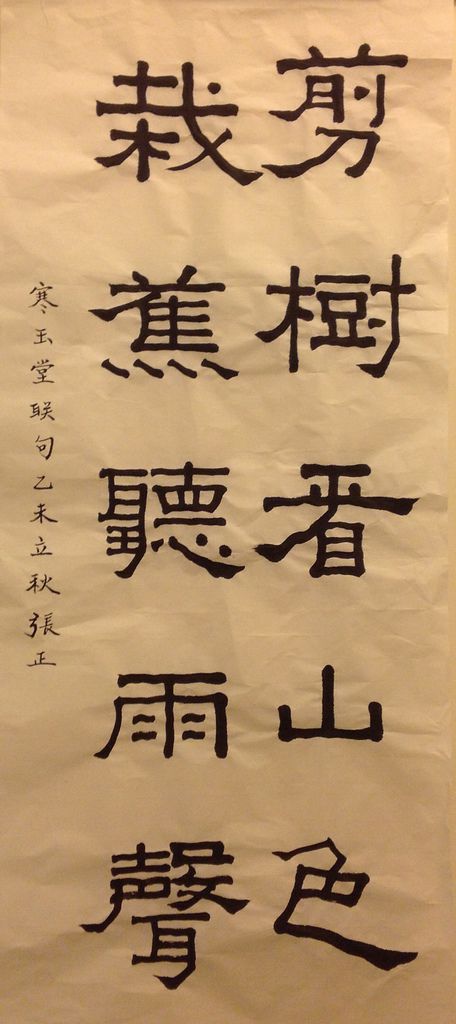 剪樹看山色
栽蕉聽雨聲
寒玉堂联句乙未立秋張正